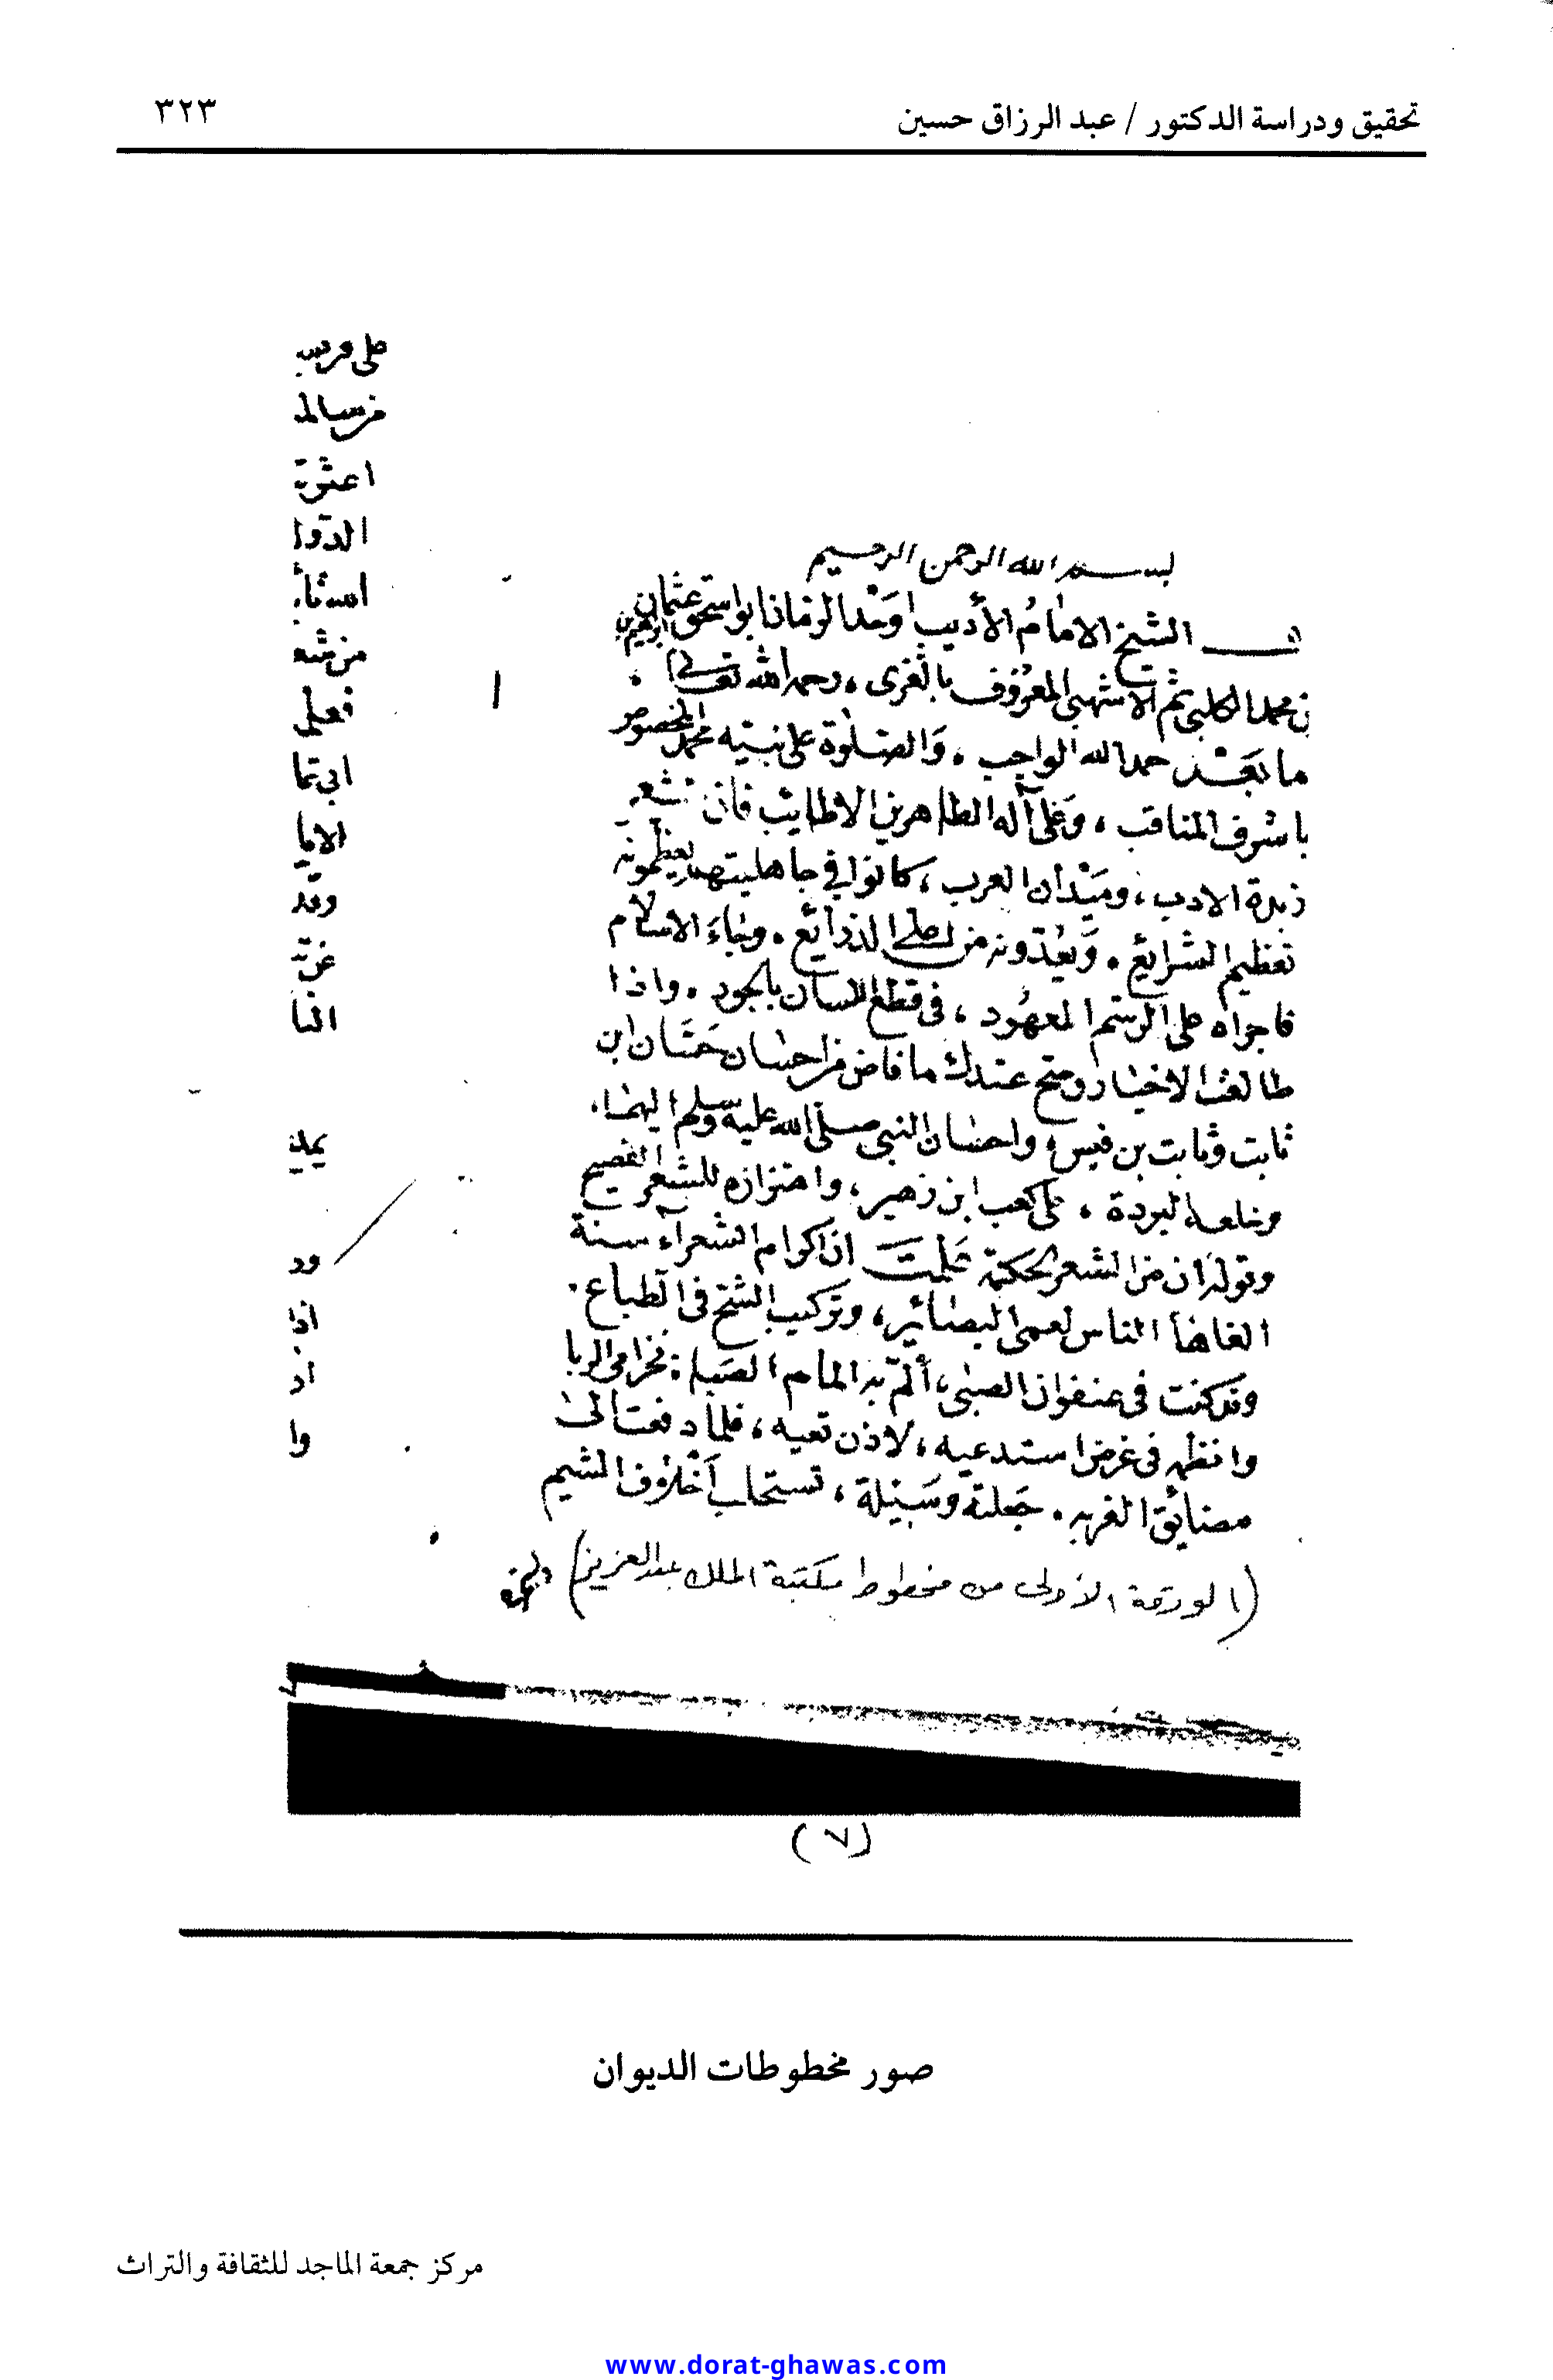 تحقيق ودراسة الدكتور / عبد الرزاق حسين
٣٢٣
بسم الله الرحمن الرحيم
الشيخ الامام الأديب اوحد الزمان ابو اسحق ابرهيم بن عثمان
بن محمد الكلبي ثم الاشهبي المعروف بالغزي، رحمه الله تعالى
ما بعد حمد الله الواجب، والصلوة على نبيه محمد المخصوص
باشرف المناقب، وعلى آله الطاهرين الاطايب فان الشعر
زبدة الادب، وميدان العرب، كانوا في جاهليتهم يعظمونه
تعظيم الشرايع. ويعدونه من اعلى الذرائع. وجاء الاسلام
فاجراه على الرسم المعهود، في قطع اللسان بالجود. واذا
طالعت الاخبار وصح عندك ما فاض من احسان حسان ابن
ثابت وثابت بن قيس، واحسان النبي صلى الله عليه وسلم اليهما،
وخلعه البردة، على كعب ابن زهير، واهتزازه للشعر الفصيح
وقوله ان من الشعر لحكمة علمت ان اكرام الشعرآء سنة
الغاها الناس لعمى البصائر، وتركيب الشح في الطباع.
وقد كنت في عنفوان الصبى، ألم به المام الصبا بخزامى الربا
وانظمه في غرض استدعيه، لاذن تعيه، فلما دفعت الى
مضائق الغربه. جعلته وسيلة، تستحلب أخلاف الشيم
(الورقة الأولى من مخطوط مكتبة الملك عبد العزيز)
على فرس
من سالم
اعثرت
الدوا
استا
من شعر
فعلى
ابي تما
الايا
وقد
عزت
النا
يملي
ود
اذا
اد
وا
(٧)
صور مخطوطات الديوان
مركز جمعة الماجد للثقافة والتراث
www.dorat-ghawas.com